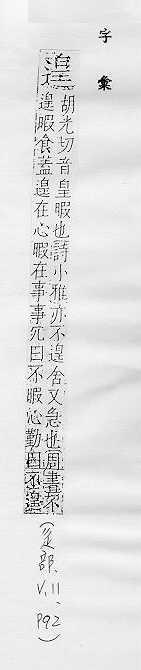 字彙
遑
胡光切音皇暇也詩小雅亦不遑舍又急也周書不
遑暇食蓋遑在心暇在事事冗曰不暇心勤曰不遑
(辵部、V.11、P92)